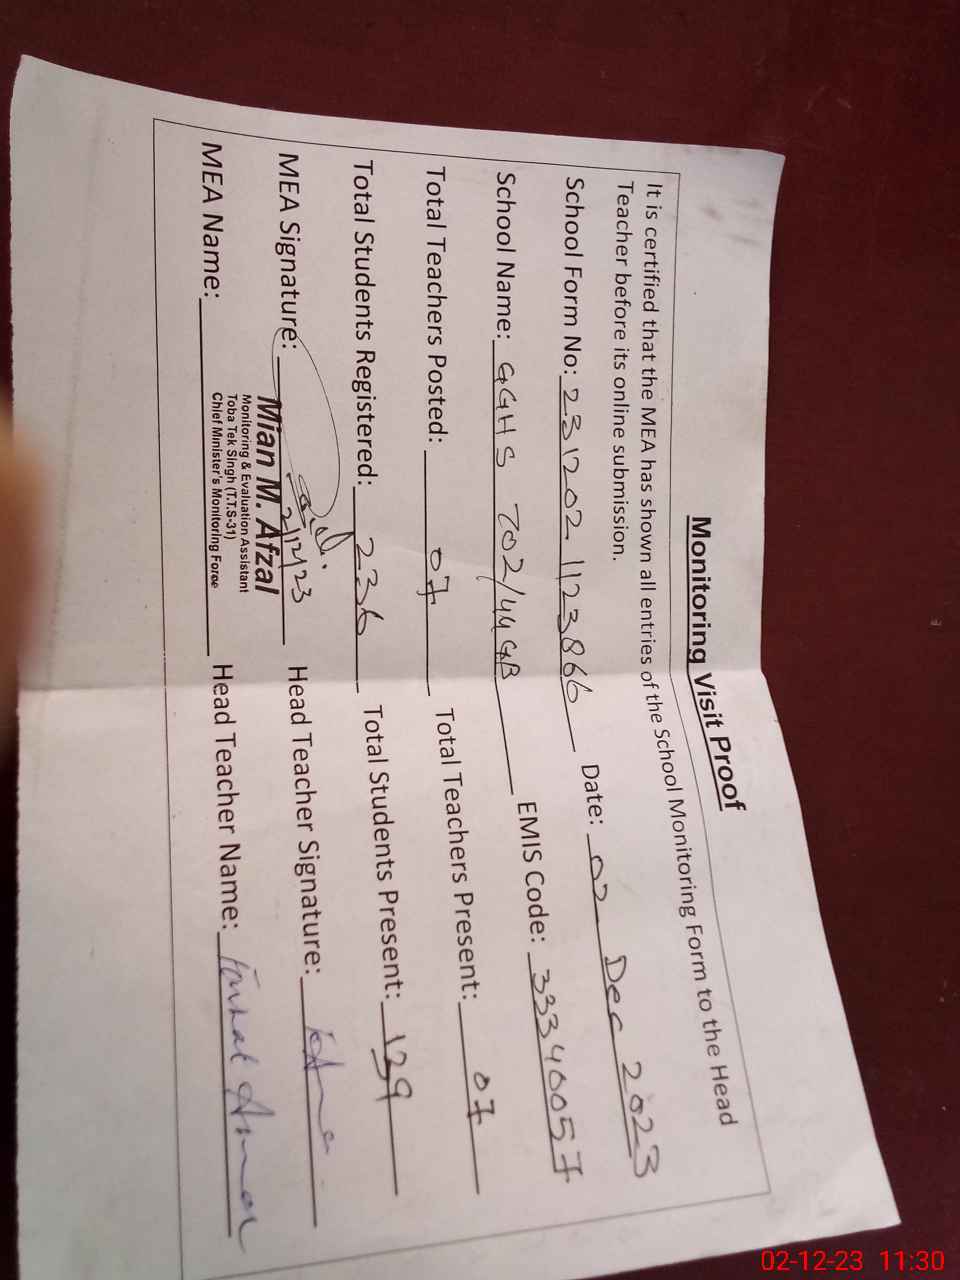 Monitoring Visit Proof
It is certified that the MEA has shown all entries of the School Monitoring Form to the Head
Teacher before its online submission.
School Form No: 231202 1123866 Date: 02 Dec 2023
School Name: GGHS 702/44 GB EMIS Code: 33340057
Total Teachers Posted: 07 Total Teachers Present: 07
Total Students Registered: 236 Total Students Present: 139
MEA Signature: 2/12/23 Head Teacher Signature:
MEA Name: Head Teacher Name: Farhat
Mian M. Afzal
Monitoring & Evaluation Assistant
Toba Tek Singh (T.T.S-31)
Chief Minister's Monitoring Force
02-12-23 11:30